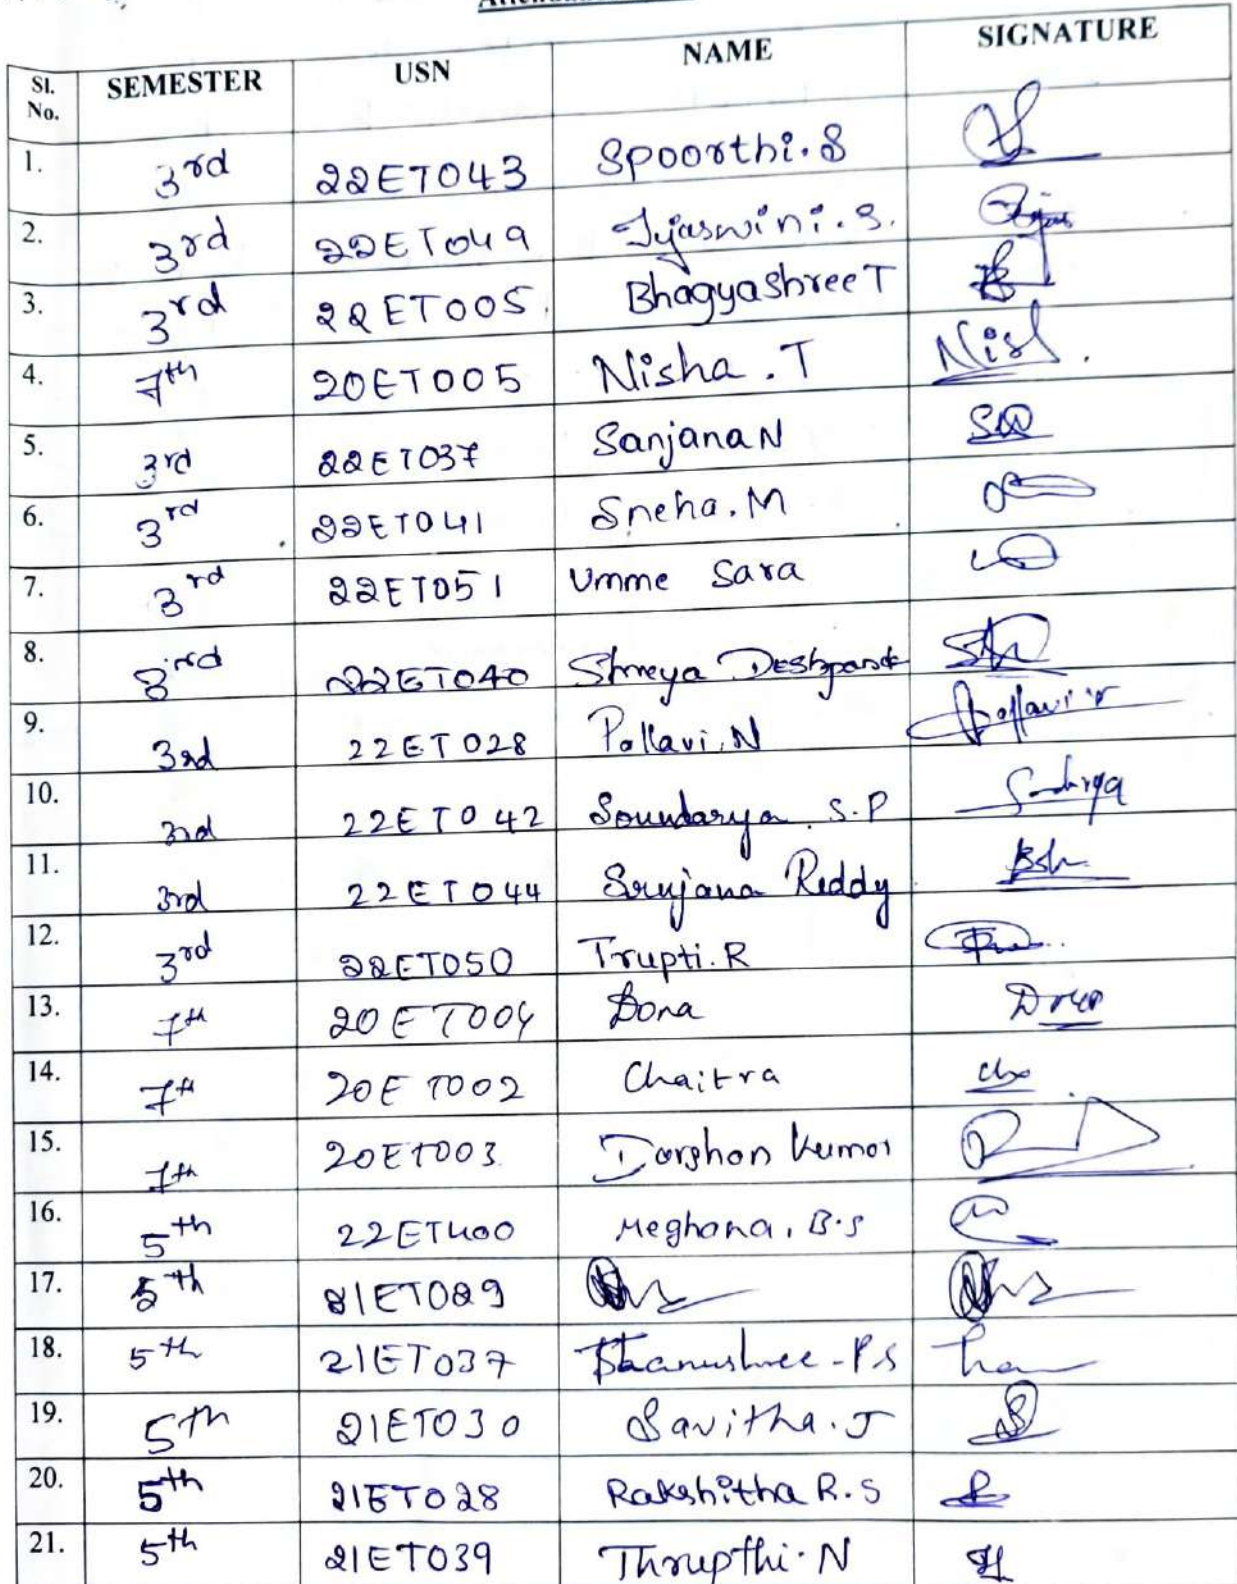 Sl. No. SEMESTER USN NAME SIGNATURE
1. 3rd 22ET043 Spoorthi.S
2. 3rd 22ET049 Tyaswini.S.
3. 3rd 22ET005. Bhagyashree T
4. 7th 20ET005 Nisha.T Nish.
5. 3rd 22ET037 Sanjana N
6. 3rd 22ET041 Sneha.M
7. 3rd 22ET051 Umme Sara
8. 3rd 22ET040 Shreya Deshpande
9. 3rd 22ET028 Pallavi.N Pallavi N
10. 3rd 22ET042 Soundarya S.P
11. 3rd 22ET044 Srujana Reddy
12. 3rd 22ET050 Trupti.R
13. 7th 20ET004 Dona
14. 7th 20ET002 Chaitra
15. 7th 20ET003 Darshan Kumar
16. 5th 22ET400 Meghana.B.S
17. 5th 21ET029
18. 5th 21ET037 Thanushree-P.S
19. 5th 21ET030 Savitha.J
20. 5th 21ET028 Rakshitha R.S
21. 5th 21ET039 Thrupthi.N